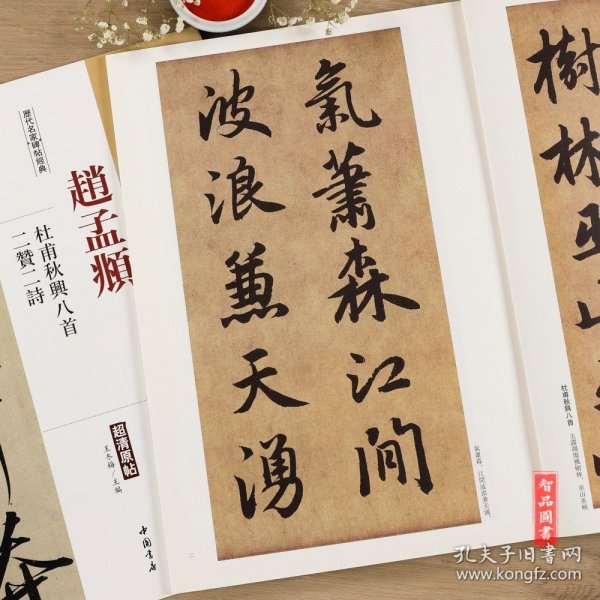 歷代名家碑帖經典
趙孟頫
杜甫秋興八首
二贊二詩
超清原帖
王冬梅／主編
中國書店
氣蕭森江間
波浪蒹天湧
氣蕭森。江間波浪兼天湧，
樹林巫山
杜甫秋興八首
玉露凋傷楓樹林，巫山巫峽
智品圖書
孔夫子旧书网
www.kongfz.com